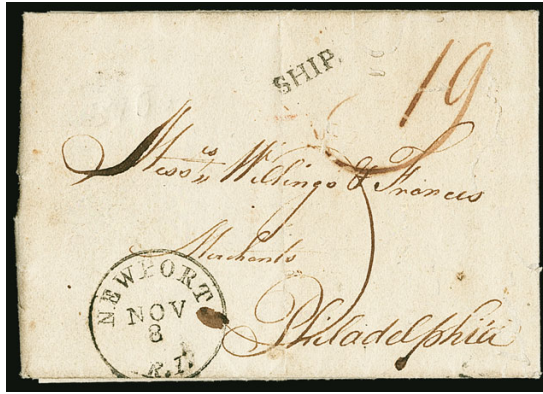 SHIP.
19
Messrs Willings & Francis
Merchants
Philadelphia
NEWPORT
NOV
8
R.I.